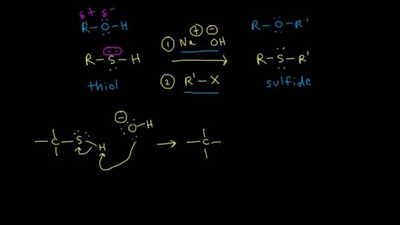 δ+ δ-
R-O-H
R-O-R'
① Na⊕ OH⊖
R-S-H
R-S-R'
② R'-X
thiol
sulfide
⊖
O-H
-C-S-H
-C-